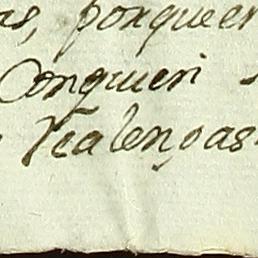 as, porque en
Conquieri
Vealengas